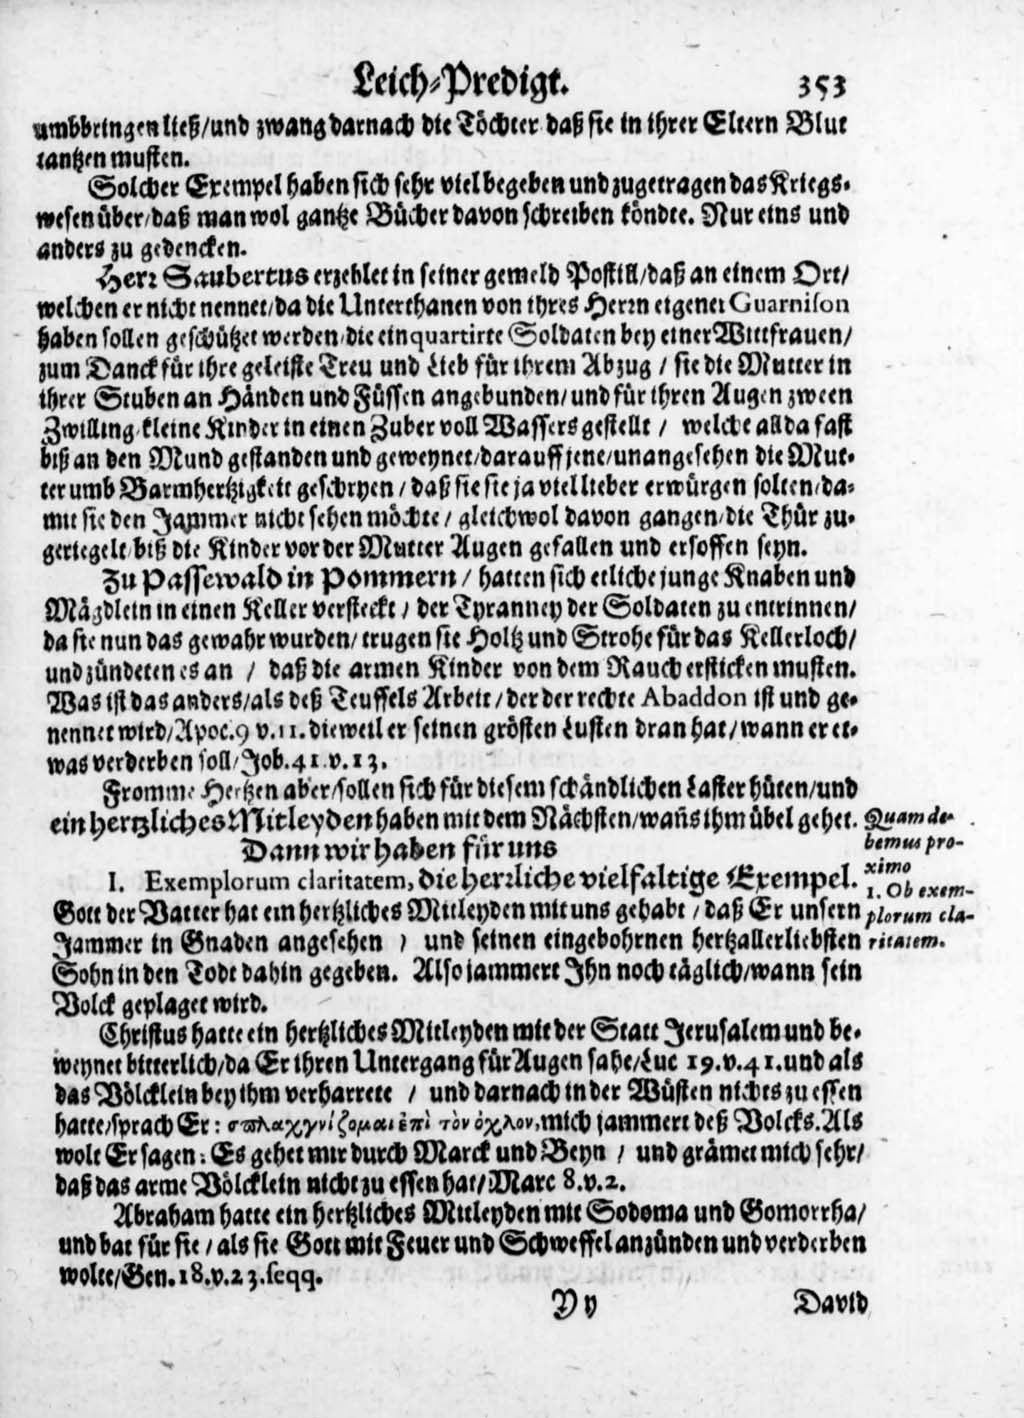 Leich-Predigt. 353
umbbringen ließ/und zwang darnach die Töchter daß sie in ihrer Eltern Blut
tantzen musten.
Solcher Exempel haben sich sehr viel begeben und zugetragen das Kriegs-
wesen über/daß man wol gantze Bücher davon schreiben köndte. Nur eins und
anders zu gedencken.
Herr Saubertus erzehlet in seiner gemeld Postill/daß an einem Ort/
welchen er nicht nennet/da die Unterthanen von ihres Herrn eigener Guarnison
haben sollen geschützet werden/die einquartirte Soldaten bey einer Wittfrauen/
zum Danck für ihre geleiste Treu und Lieb für ihrem Abzug / sie die Mutter in
ihrer Stuben an Händen und Füssen angebunden/und für ihren Augen zween
Zwilling/kleine Kinder in einen Zuber voll Wassers gestellt / welche allda fast
biß an den Mund gestanden und geweynet/darauff jene/unangesehen die Mut-
ter umb Barmhertzigkeit geschryen / daß sie sie ja viel lieber erwürgen solten/da-
mit sie den Jammer nicht sehen möchte / gleichwol davon gangen/die Thür zu-
geriegelt/biß die Kinder vor der Mutter Augen gefallen und ersoffen seyn.
Zu Passewald in Pommern / hatten sich etliche junge Knaben und
Mägdlein in einen Keller versteckt / der Tyranney der Soldaten zu entrinnen/
da sie nun das gewahr wurden/trugen sie Holtz und Strohe für das Kellerloch/
und zündeten es an / daß die armen Kinder von dem Rauch ersticken musten.
Was ist das anders/als deß Teuffels Arbeit / der der rechte Abaddon ist und ge-
nennet wird/Apoc.9 v.11. dieweil er seinen grösten Lusten dran hat/wann er et-
was verderben soll/Job.41.v.13.
Fromme Hertzen aber/sollen sich für diesem schändlichen Laster hüten/und
ein hertzliches Mitleyden haben mit dem Nächsten/wañs ihm übel gehet.
Dann wir haben für uns
I. Exemplorum claritatem, die herrliche vielfaltige Exempel.
Gott der Vatter hat ein hertzliches Mitleyden mit uns gehabt / daß Er unsern
Jammer in Gnaden angesehen / und seinen eingebohrnen hertzallerliebsten
Sohn in den Todt dahin gegeben. Also jammert Ihn noch täglich/wann sein
Volck geplaget wird.
Quam de-
bemus pro-
ximo
1. Ob exem-
plorum cla-
ritatem.
Christus hatte ein hertzliches Mitleyden mit der Statt Jerusalem und be-
weynet bitterlich/da Er ihren Untergang für Augen sahe/Luc 19.v.41.und als
das Völcklein bey ihm verharrete / und darnach in der Wüsten nichts zu essen
hatte/sprach Er: σπλαχγνίζομαι ἐπὶ τὸν ὀχλον, mich jammert deß Volcks. Als
wolt Er sagen: Es gehet mir durch Marck und Beyn / und grämet mich sehr/
daß das arme Völcklein nicht zu essen hat/Marc 8.v.2.
Abraham hatte ein hertzliches Mitleyden mit Sodoma und Gomorrha/
und bat für sie / als sie Gott mit Feuer und Schweffel anzünden und verderben
wolte/Gen.18.v.23.seqq.
Yy David